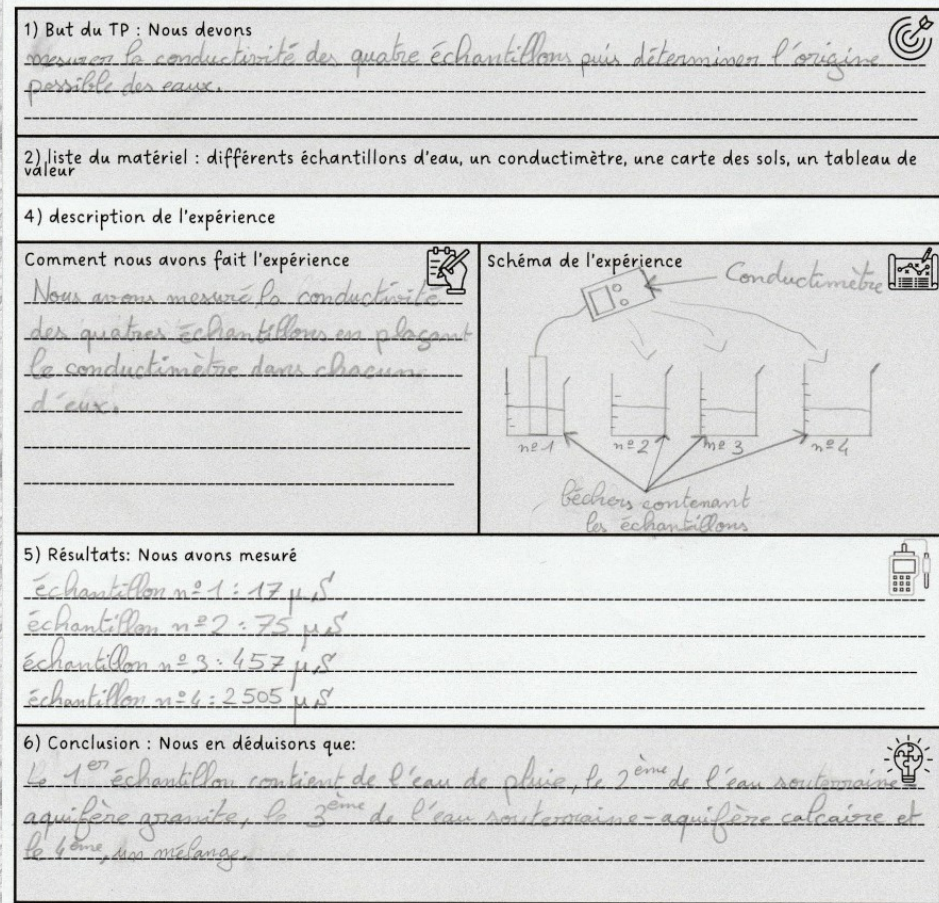 1) But du TP : Nous devons
mesurer la conductivité des quatre échantillons puis déterminer l'origine
possible des eaux.
2) liste du matériel : différents échantillons d'eau, un conductimètre, une carte des sols, un tableau de
valeur
4) description de l'expérience
Comment nous avons fait l'expérience
Nous avons mesuré la conductivité
des quatres échantillons en plaçant
le conductimètre dans chacun
d'eux.
Schéma de l'expérience
Conductimètre
n°1 n°2 n°3 n°4
béchers contenant
les échantillons
5) Résultats: Nous avons mesuré
échantillon n°1 : 17 µS
échantillon n°2 : 75 µS
échantillon n°3 : 457 µS
échantillon n°4 : 2505 µS
6) Conclusion : Nous en déduisons que:
Le 1er échantillon contient de l'eau de pluie, le 2ème de l'eau souterraine
aquifère granite, le 3ème de l'eau souterraine-aquifère calcaire et
le 4ème, un mélange.